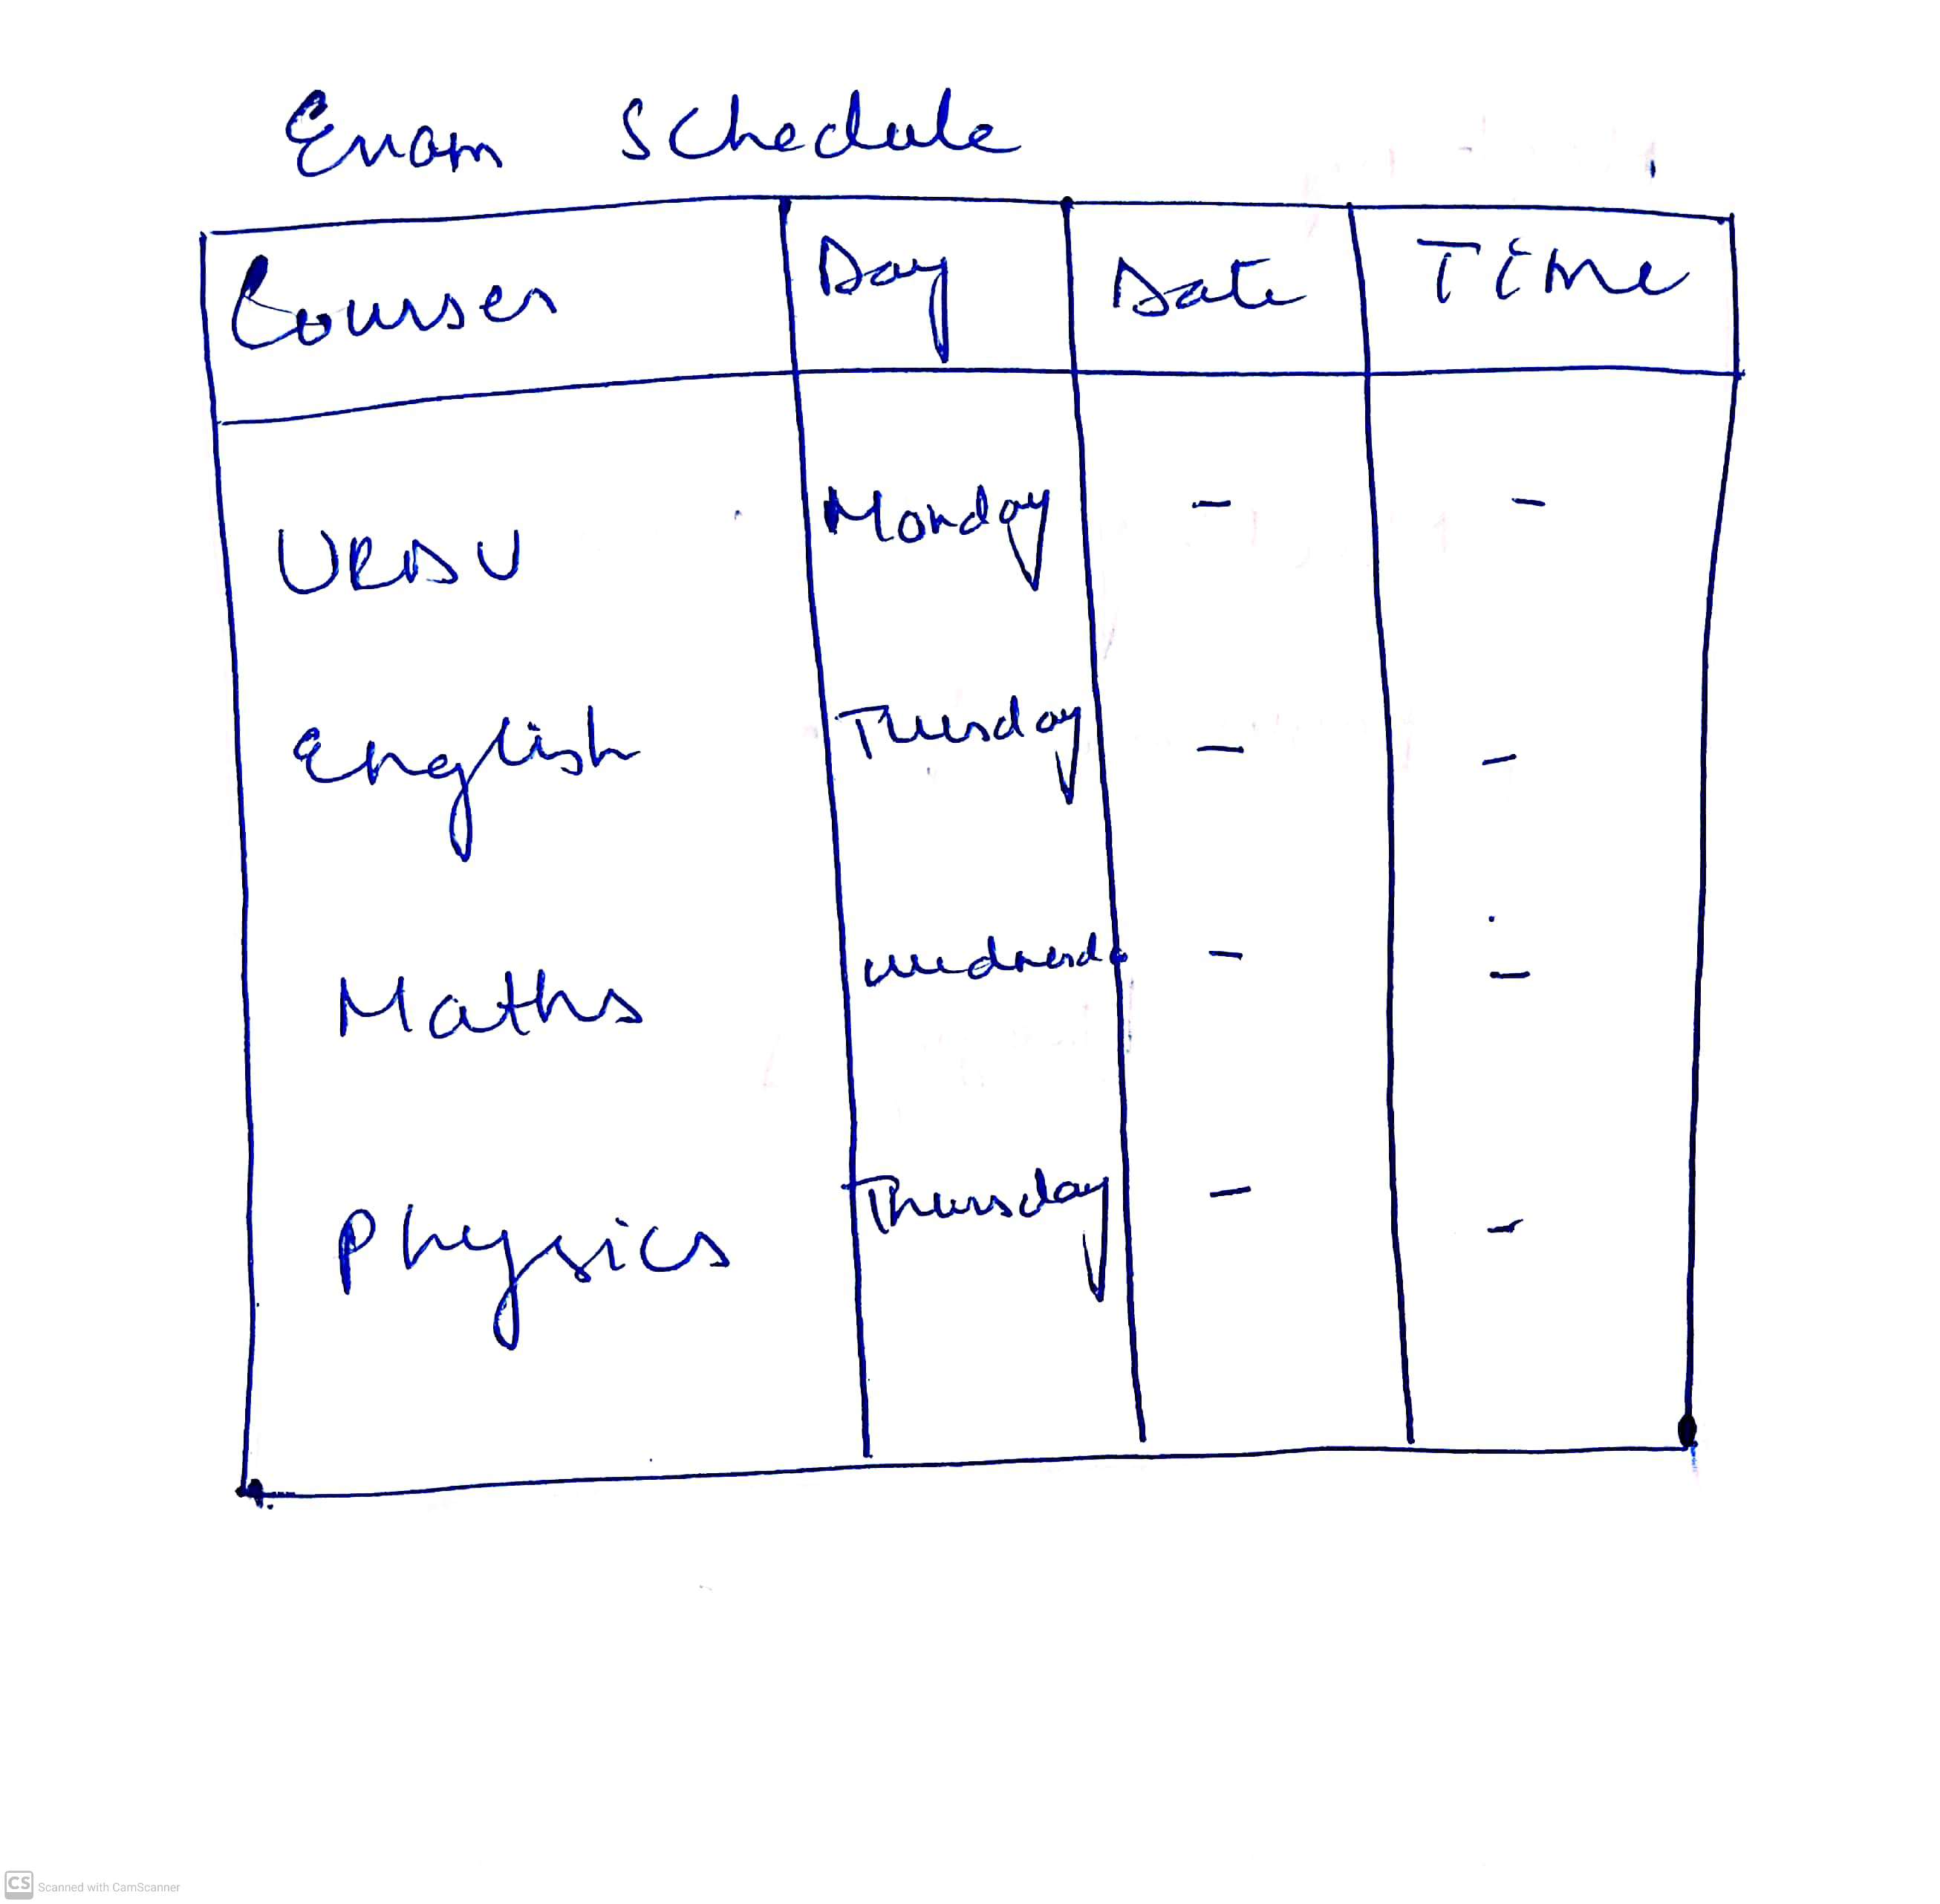 Exam Schedule
Courses Day Date Time
URDU Monday - -
English Tuesday - -
Maths wednesd - -
Physics Thursday - -
CS Scanned with CamScanner